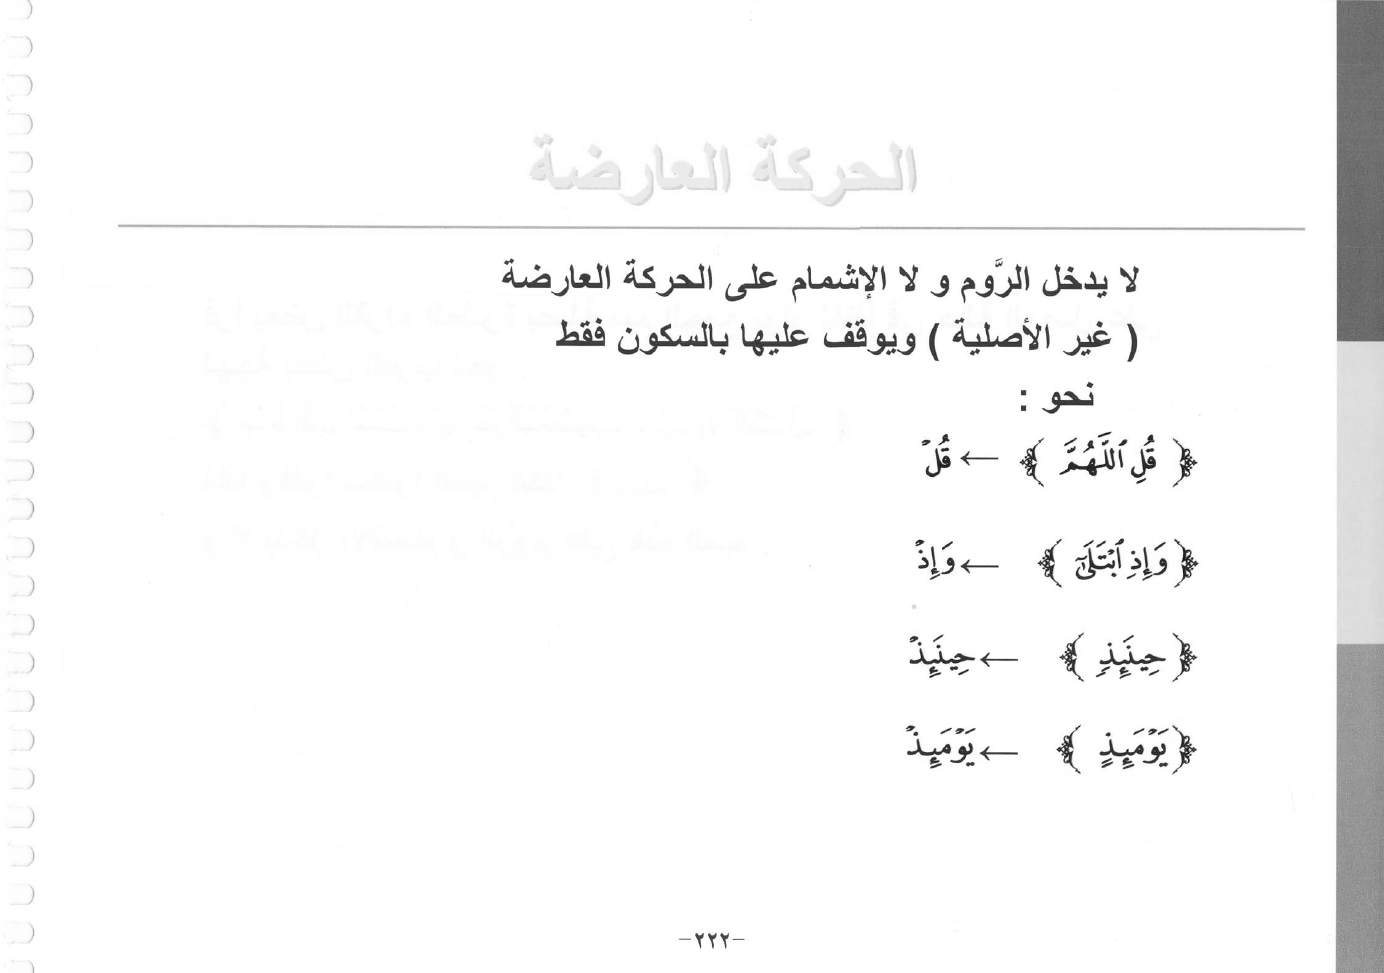 الحركة العارضة
لا يدخل الرَّوم و لا الإشمام على الحركة العارضة
( غير الأصلية ) ويوقف عليها بالسكون فقط
نحو :
﴿ قُلِ ٱللَّهُمَّ ﴾ ← قُلْ
﴿ وَإِذِ ٱبْتَلَىٰٓ ﴾ ← وَإِذْ
﴿ حِينَئِذٖ ﴾ ← حِينَئِذْ
﴿ يَوْمَئِذٍ ﴾ ← يَوْمَئِذْ
-٢٢٢-